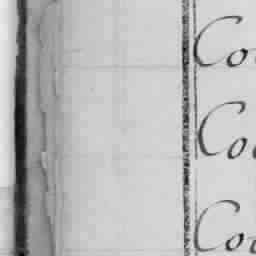 Co
Co
Co